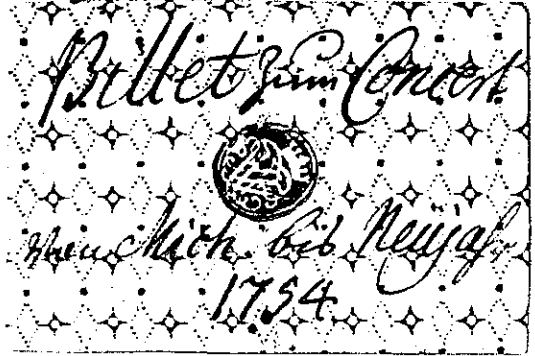 Billet zum Concert
von Mich. bis Neujahr
1754